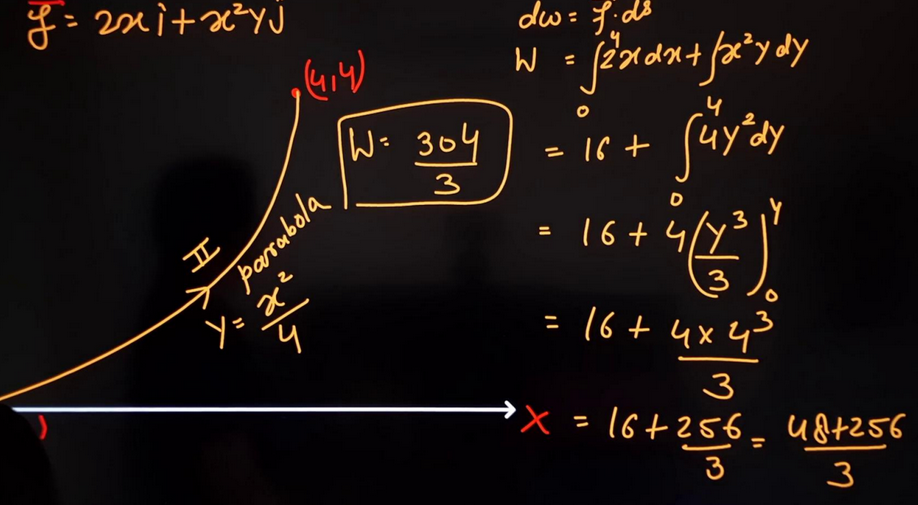 F̅ = 2xi + x²yj
(4,4)
W = 304/3
II
parabola
y = x²/4
X
dw = f·ds
W = ∫₀⁴ 2x dx + ∫x²y dy
= 16 + ∫₀⁴ 4y² dy
= 16 + 4(y³/3)₀⁴
= 16 + 4×4³/3
= 16 + 256/3 = 48+256/3